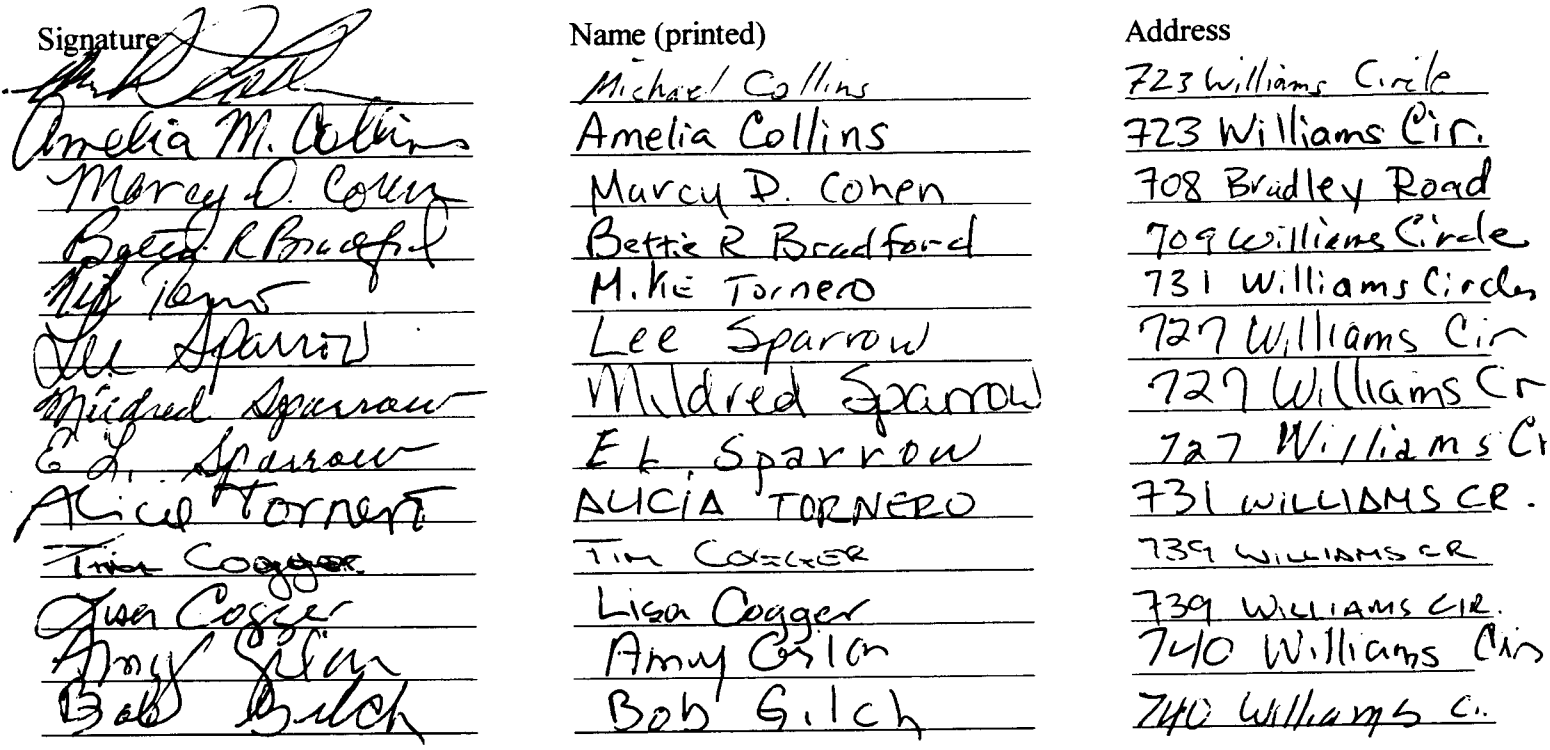 Signature Name (printed) Address
Michael Collins 723 Williams Circle
Amelia M. Collins Amelia Collins 723 Williams Cir.
Marcy D. Cohen Marcy D. Cohen 708 Bradley Road
Bettie R Bradford Bettie R Bradford 709 Williams Circle
Mike Tornero 731 Williams Circle
Lee Sparrow Lee Sparrow 727 Williams Cir
Mildred Sparrow Mildred Sparrow 727 Williams Cr
E L. Sparrow E L. Sparrow 727 Williams Cr
Alicia Tornero ALICIA TORNERO 731 WILLIAMS CR.
Tim Cogger TIM COGGER 739 WILLIAMS CR
Lisa Cogger Lisa Cogger 739 WILLIAMS CIR.
Amy Amy 740 Williams Cir
Bob Gilch Bob Gilch 740 Williams C.